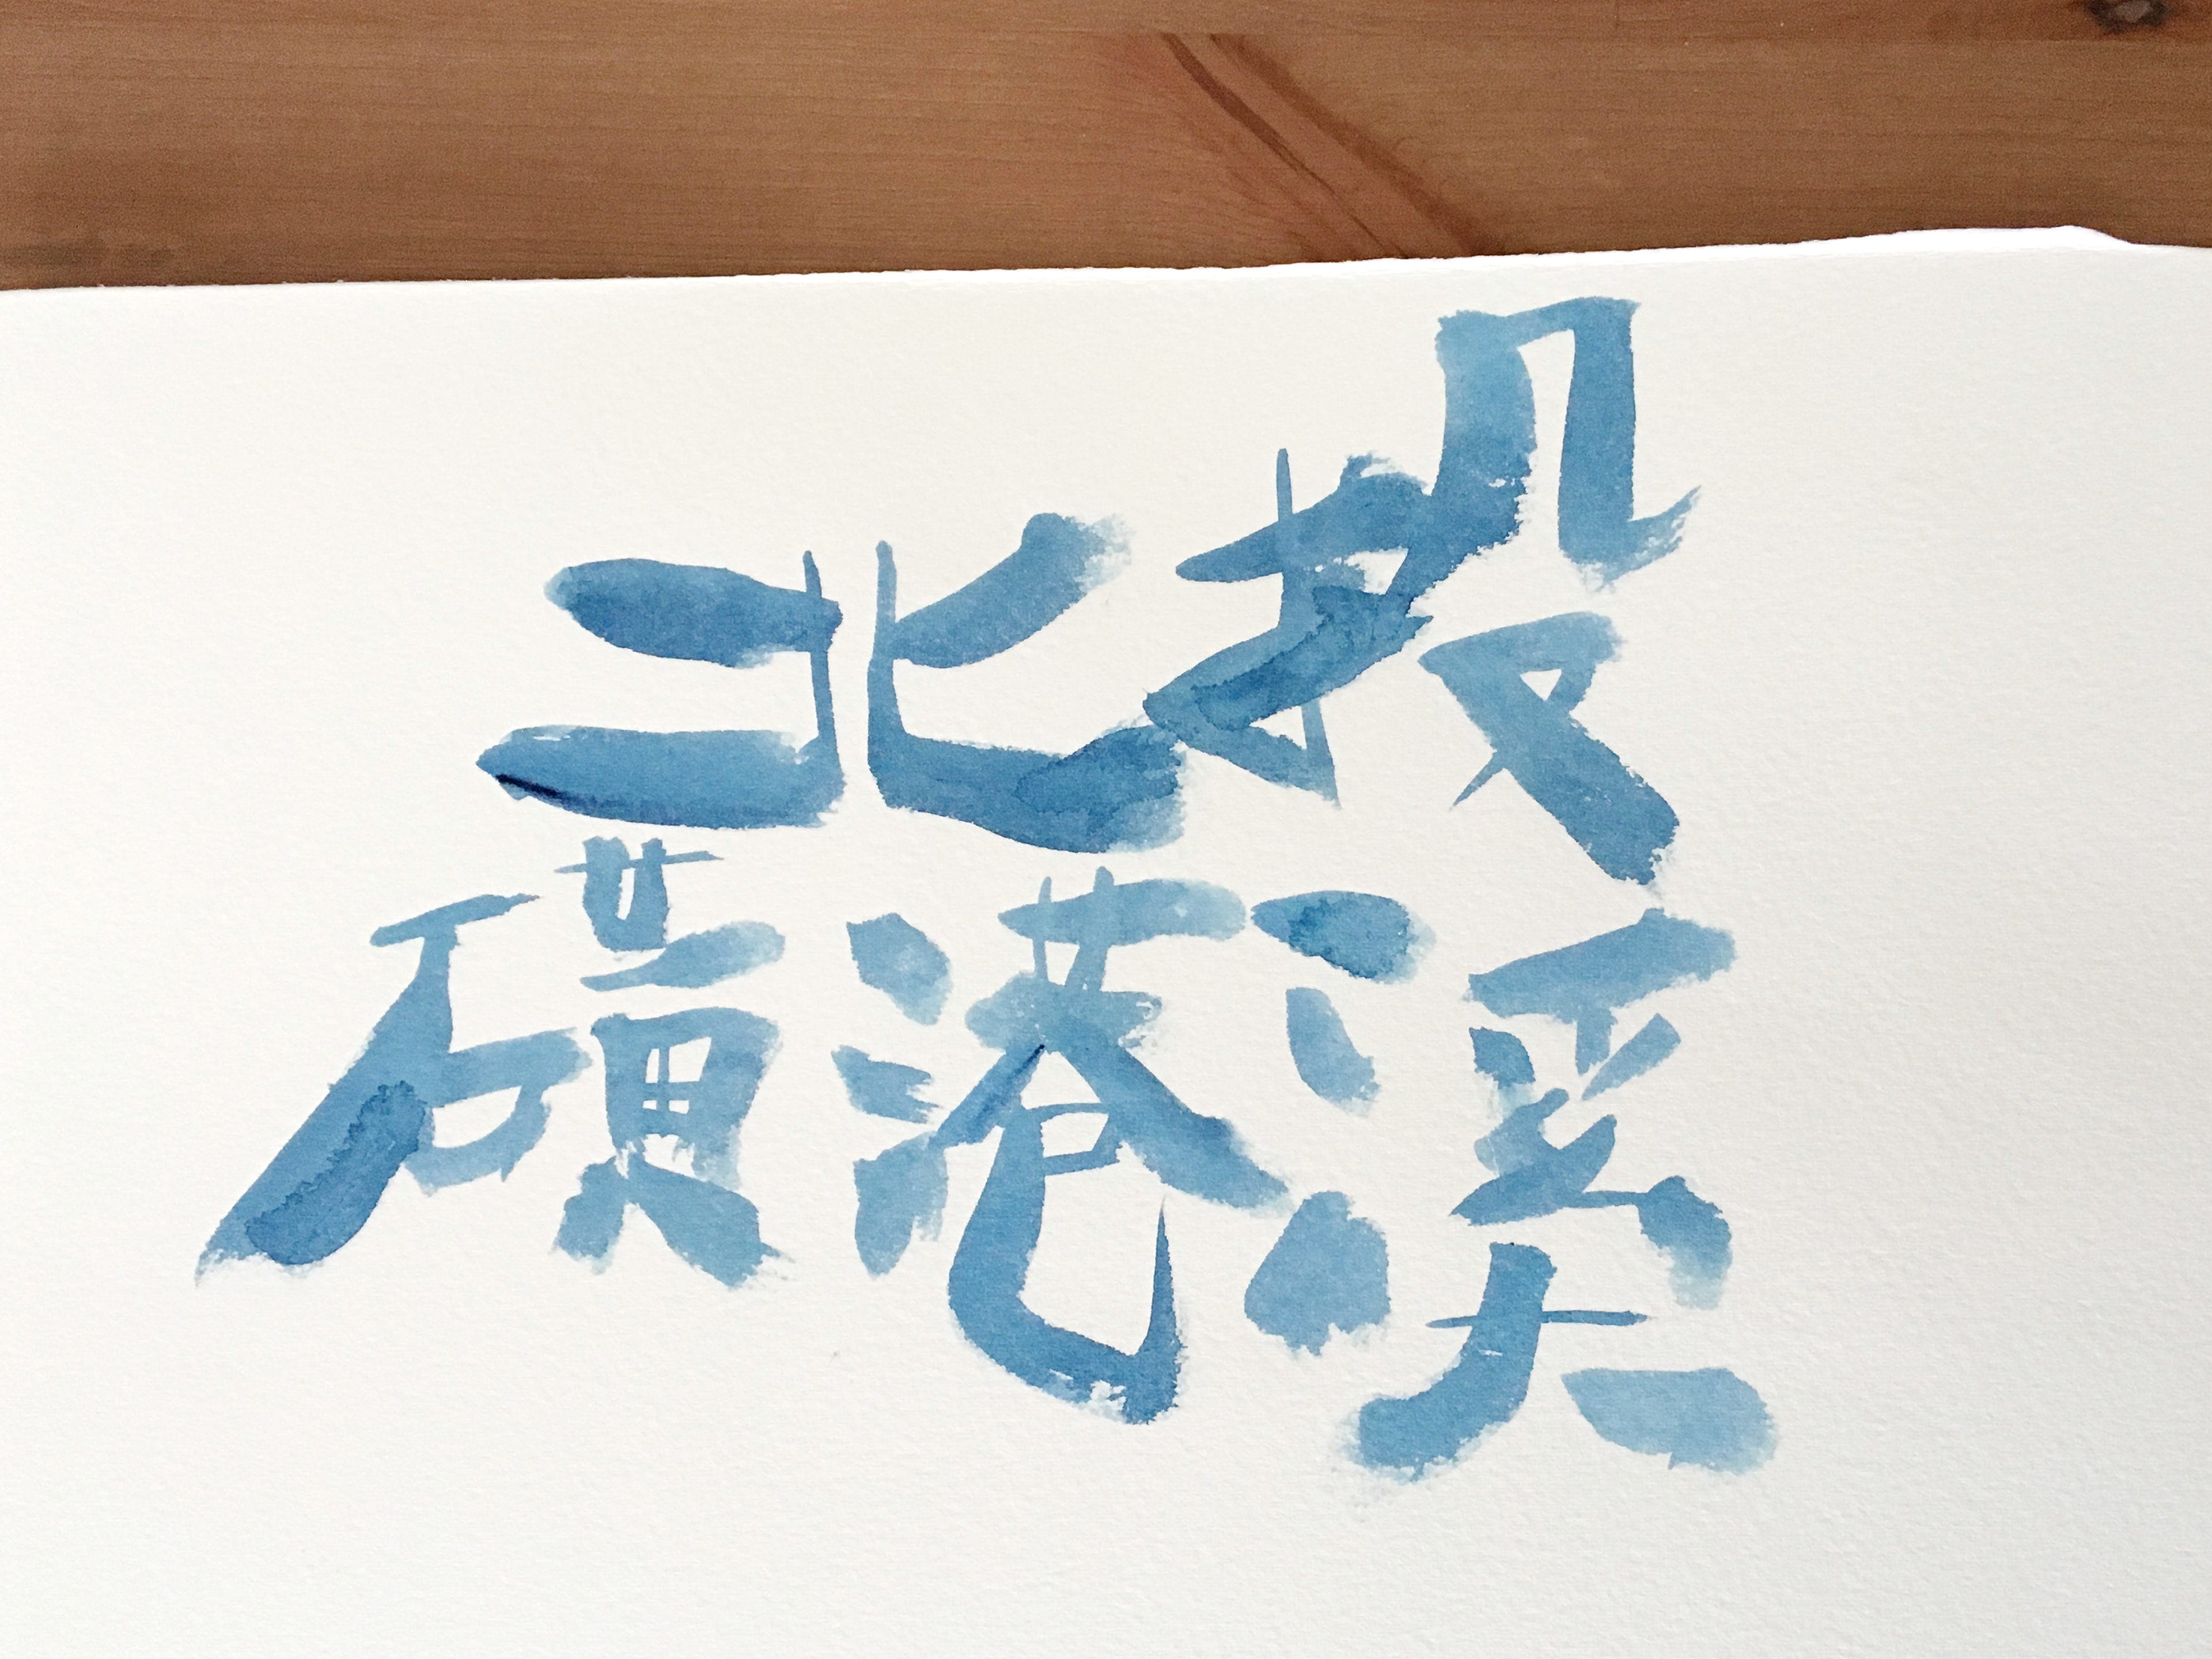 北投
磺港溪